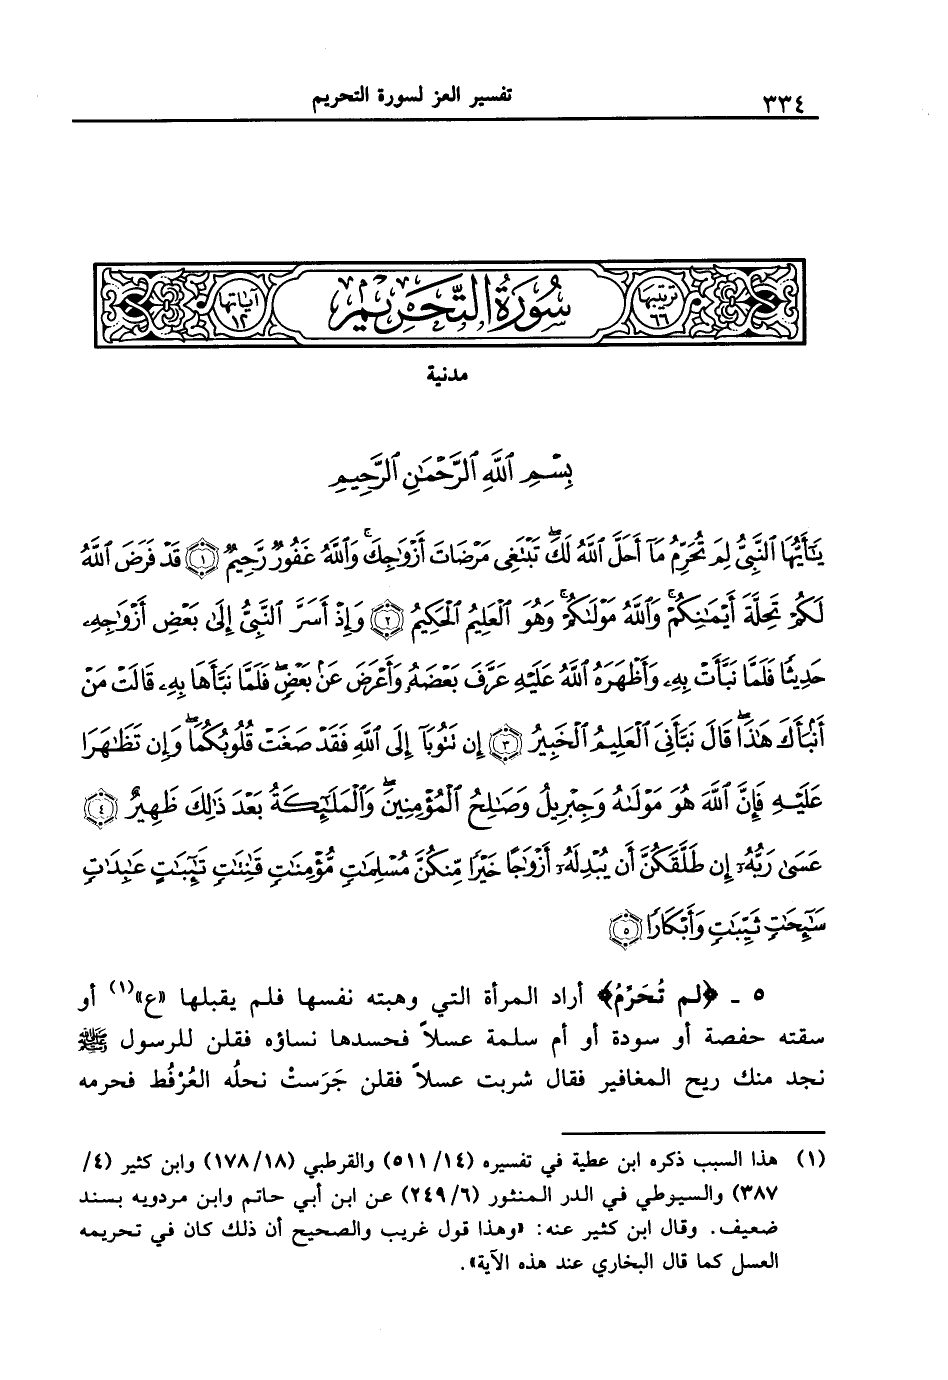 ٣٣٤
تفسير العز لسورة التحريم
ترتيبها ٦٦
سُورَةُ التَّحْرِيم
آياتها ١٢
مدنية
بِسْمِ ٱللَّهِ ٱلرَّحْمَٰنِ ٱلرَّحِيمِ
يَٰٓأَيُّهَا ٱلنَّبِىُّ لِمَ تُحَرِّمُ مَآ أَحَلَّ ٱللَّهُ لَكَۖ تَبْتَغِى مَرْضَاتَ أَزْوَٰجِكَۚ وَٱللَّهُ غَفُورٌ رَّحِيمٌ ١ قَدْ فَرَضَ ٱللَّهُ
لَكُمْ تَحِلَّةَ أَيْمَٰنِكُمْۚ وَٱللَّهُ مَوْلَىٰكُمْۖ وَهُوَ ٱلْعَلِيمُ ٱلْحَكِيمُ ٢ وَإِذْ أَسَرَّ ٱلنَّبِىُّ إِلَىٰ بَعْضِ أَزْوَٰجِهِۦ
حَدِيثًا فَلَمَّا نَبَّأَتْ بِهِۦ وَأَظْهَرَهُ ٱللَّهُ عَلَيْهِ عَرَّفَ بَعْضَهُۥ وَأَعْرَضَ عَنۢ بَعْضٍۖ فَلَمَّا نَبَّأَهَا بِهِۦ قَالَتْ مَنْ
أَنۢبَأَكَ هَٰذَاۖ قَالَ نَبَّأَنِىَ ٱلْعَلِيمُ ٱلْخَبِيرُ ٣ إِن تَتُوبَآ إِلَى ٱللَّهِ فَقَدْ صَغَتْ قُلُوبُكُمَاۖ وَإِن تَظَٰهَرَا
عَلَيْهِ فَإِنَّ ٱللَّهَ هُوَ مَوْلَىٰهُ وَجِبْرِيلُ وَصَٰلِحُ ٱلْمُؤْمِنِينَۖ وَٱلْمَلَٰٓئِكَةُ بَعْدَ ذَٰلِكَ ظَهِيرٌ ٤
عَسَىٰ رَبُّهُۥٓ إِن طَلَّقَكُنَّ أَن يُبْدِلَهُۥٓ أَزْوَٰجًا خَيْرًا مِّنكُنَّ مُسْلِمَٰتٍ مُّؤْمِنَٰتٍ قَٰنِتَٰتٍ تَٰٓئِبَٰتٍ عَٰبِدَٰتٍ
سَٰٓئِحَٰتٍ ثَيِّبَٰتٍ وَأَبْكَارًا ٥
٥ ـ ﴿لم تُحَرِّمُ﴾ أراد المرأة التي وهبته نفسها فلم يقبلها «ع»(١) أو
سقته حفصة أو سودة أو أم سلمة عسلاً فحسدها نساؤه فقلن للرسول ﷺ
نجد منك ريح المغافير فقال شربت عسلاً فقلن جَرَستْ نحلُه العُرْفُط فحرمه
(١) هذا السبب ذكره ابن عطية في تفسيره (٥١١/١٤) والقرطبي (١٧٨/١٨) وابن كثير (٤/
٣٨٧) والسيوطي في الدر المنثور (٢٤٩/٦) عن ابن أبي حاتم وابن مردويه بسند
ضعيف. وقال ابن كثير عنه: «وهذا قول غريب والصحيح أن ذلك كان في تحريمه
العسل كما قال البخاري عند هذه الآية».